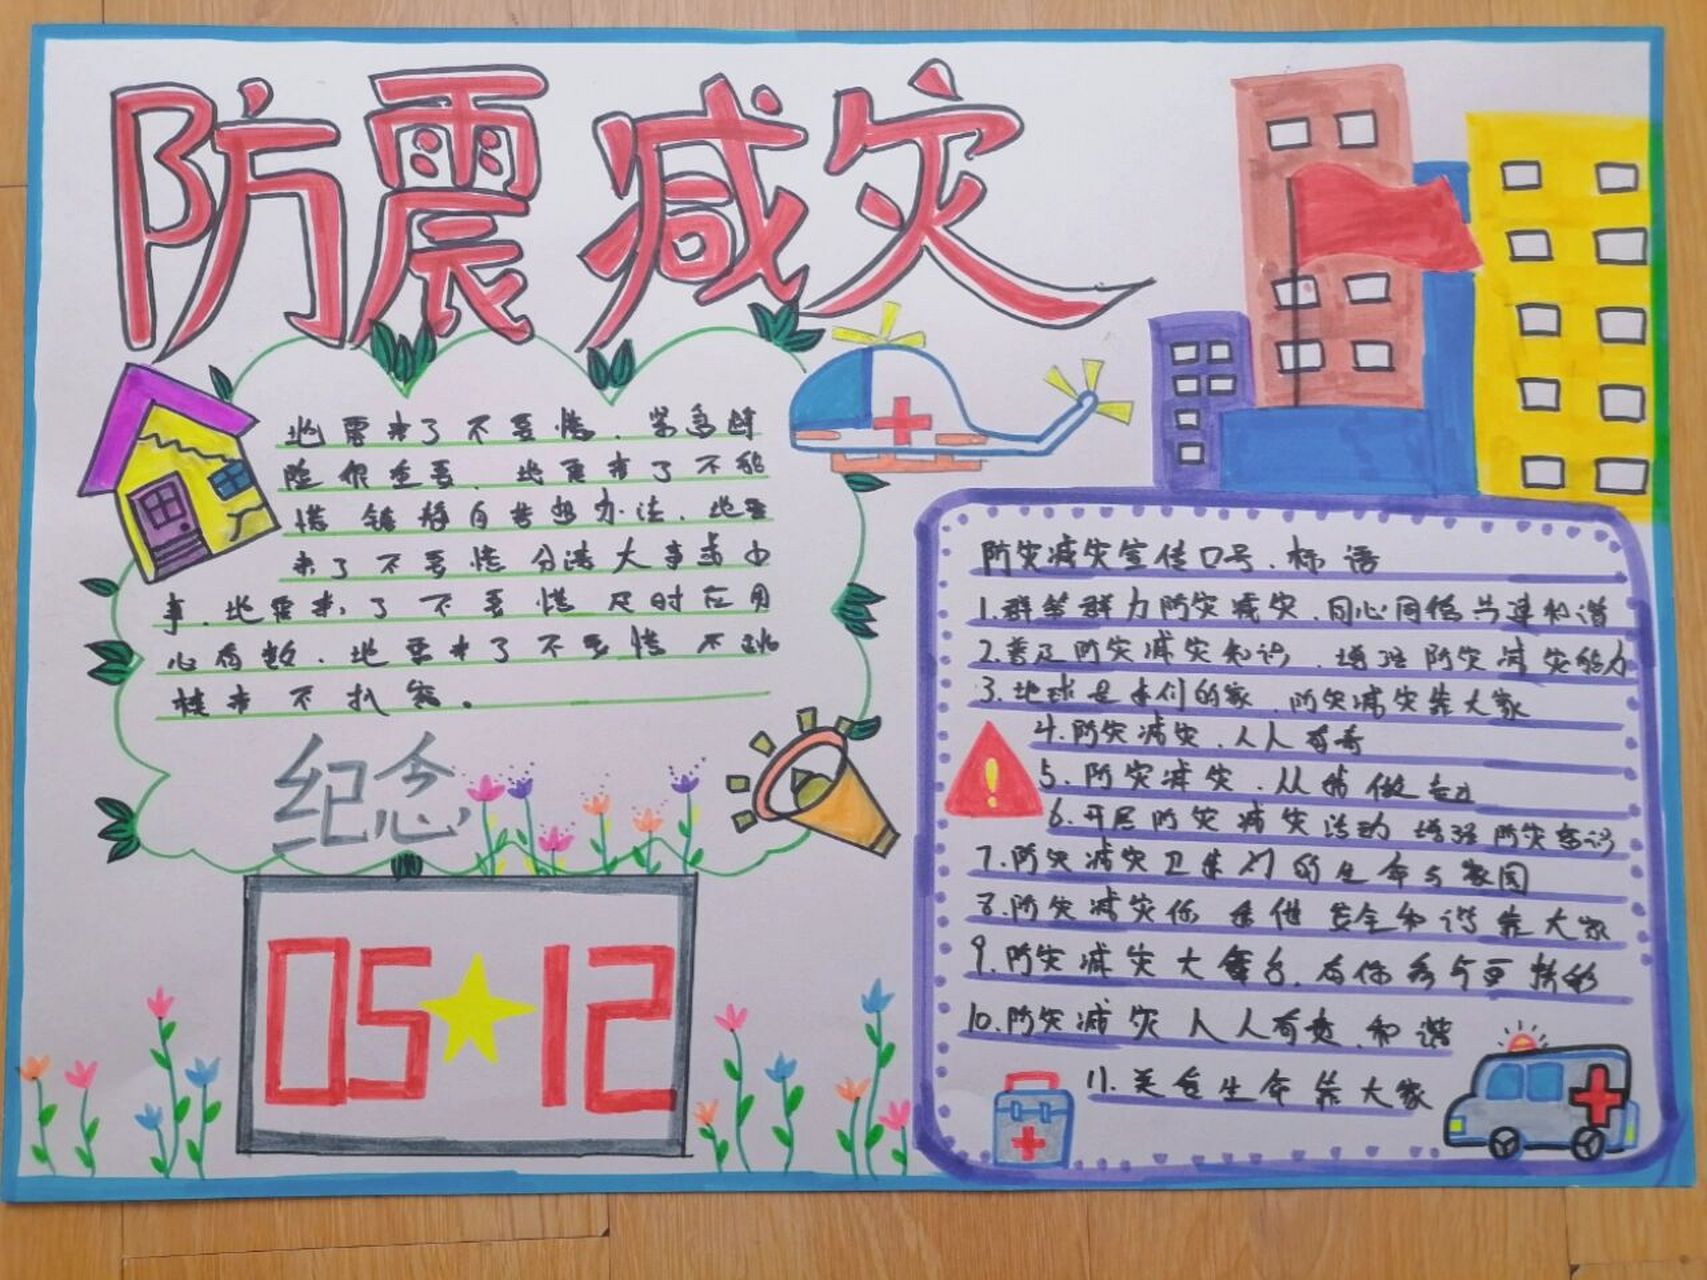 防震减灾
地震来了不要慌、紧急避
险很重要、地震来了不能
慌 镇静自若想办法、地震
来了不要慌 分清大事或小
事、地震来了不要慌 及时应用
心有数、地震来了不要慌 不跳
楼来不扒窗。
纪念
05 12
防灾减灾宣传口号、标语
1.群策群力防灾减灾、同心同德共建和谐
2.普及防灾减灾知识、增强防灾减灾能力
3.地球是我们的家、防灾减灾靠大家
4.防灾减灾、人人有责
5.防灾减灾、从我做起
6.开展防灾减灾活动 增强防灾意识
7.防灾减灾卫我们的生命与家园
8.防灾减灾你我他 安全和谐靠大家
9.防灾减灾大舞台、有你参与更精彩
10.防灾减灾人人有责、和谐
11.关爱生命靠大家